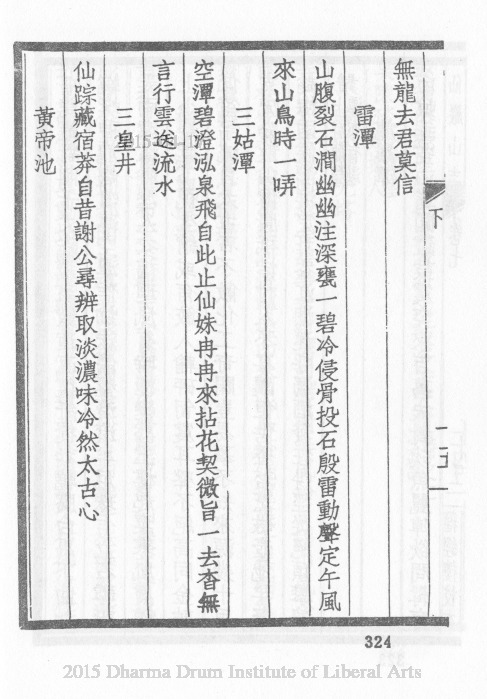 無龍去君莫信
雷潭
山腹裂石澗幽幽注深甕一碧冷侵骨投石殷雷動聲定午風
來山鳥時一哢
三姑潭
空潭碧澄泓泉飛自此止仙姝冉冉來拈花契微旨一去杳無
言行雲送流水
三皇井
仙踪藏宿莽自昔謝公尋辨取淡濃味冷然太古心
黃帝池
下
一五
324
2015 Dharma Drum Institute of Liberal Arts